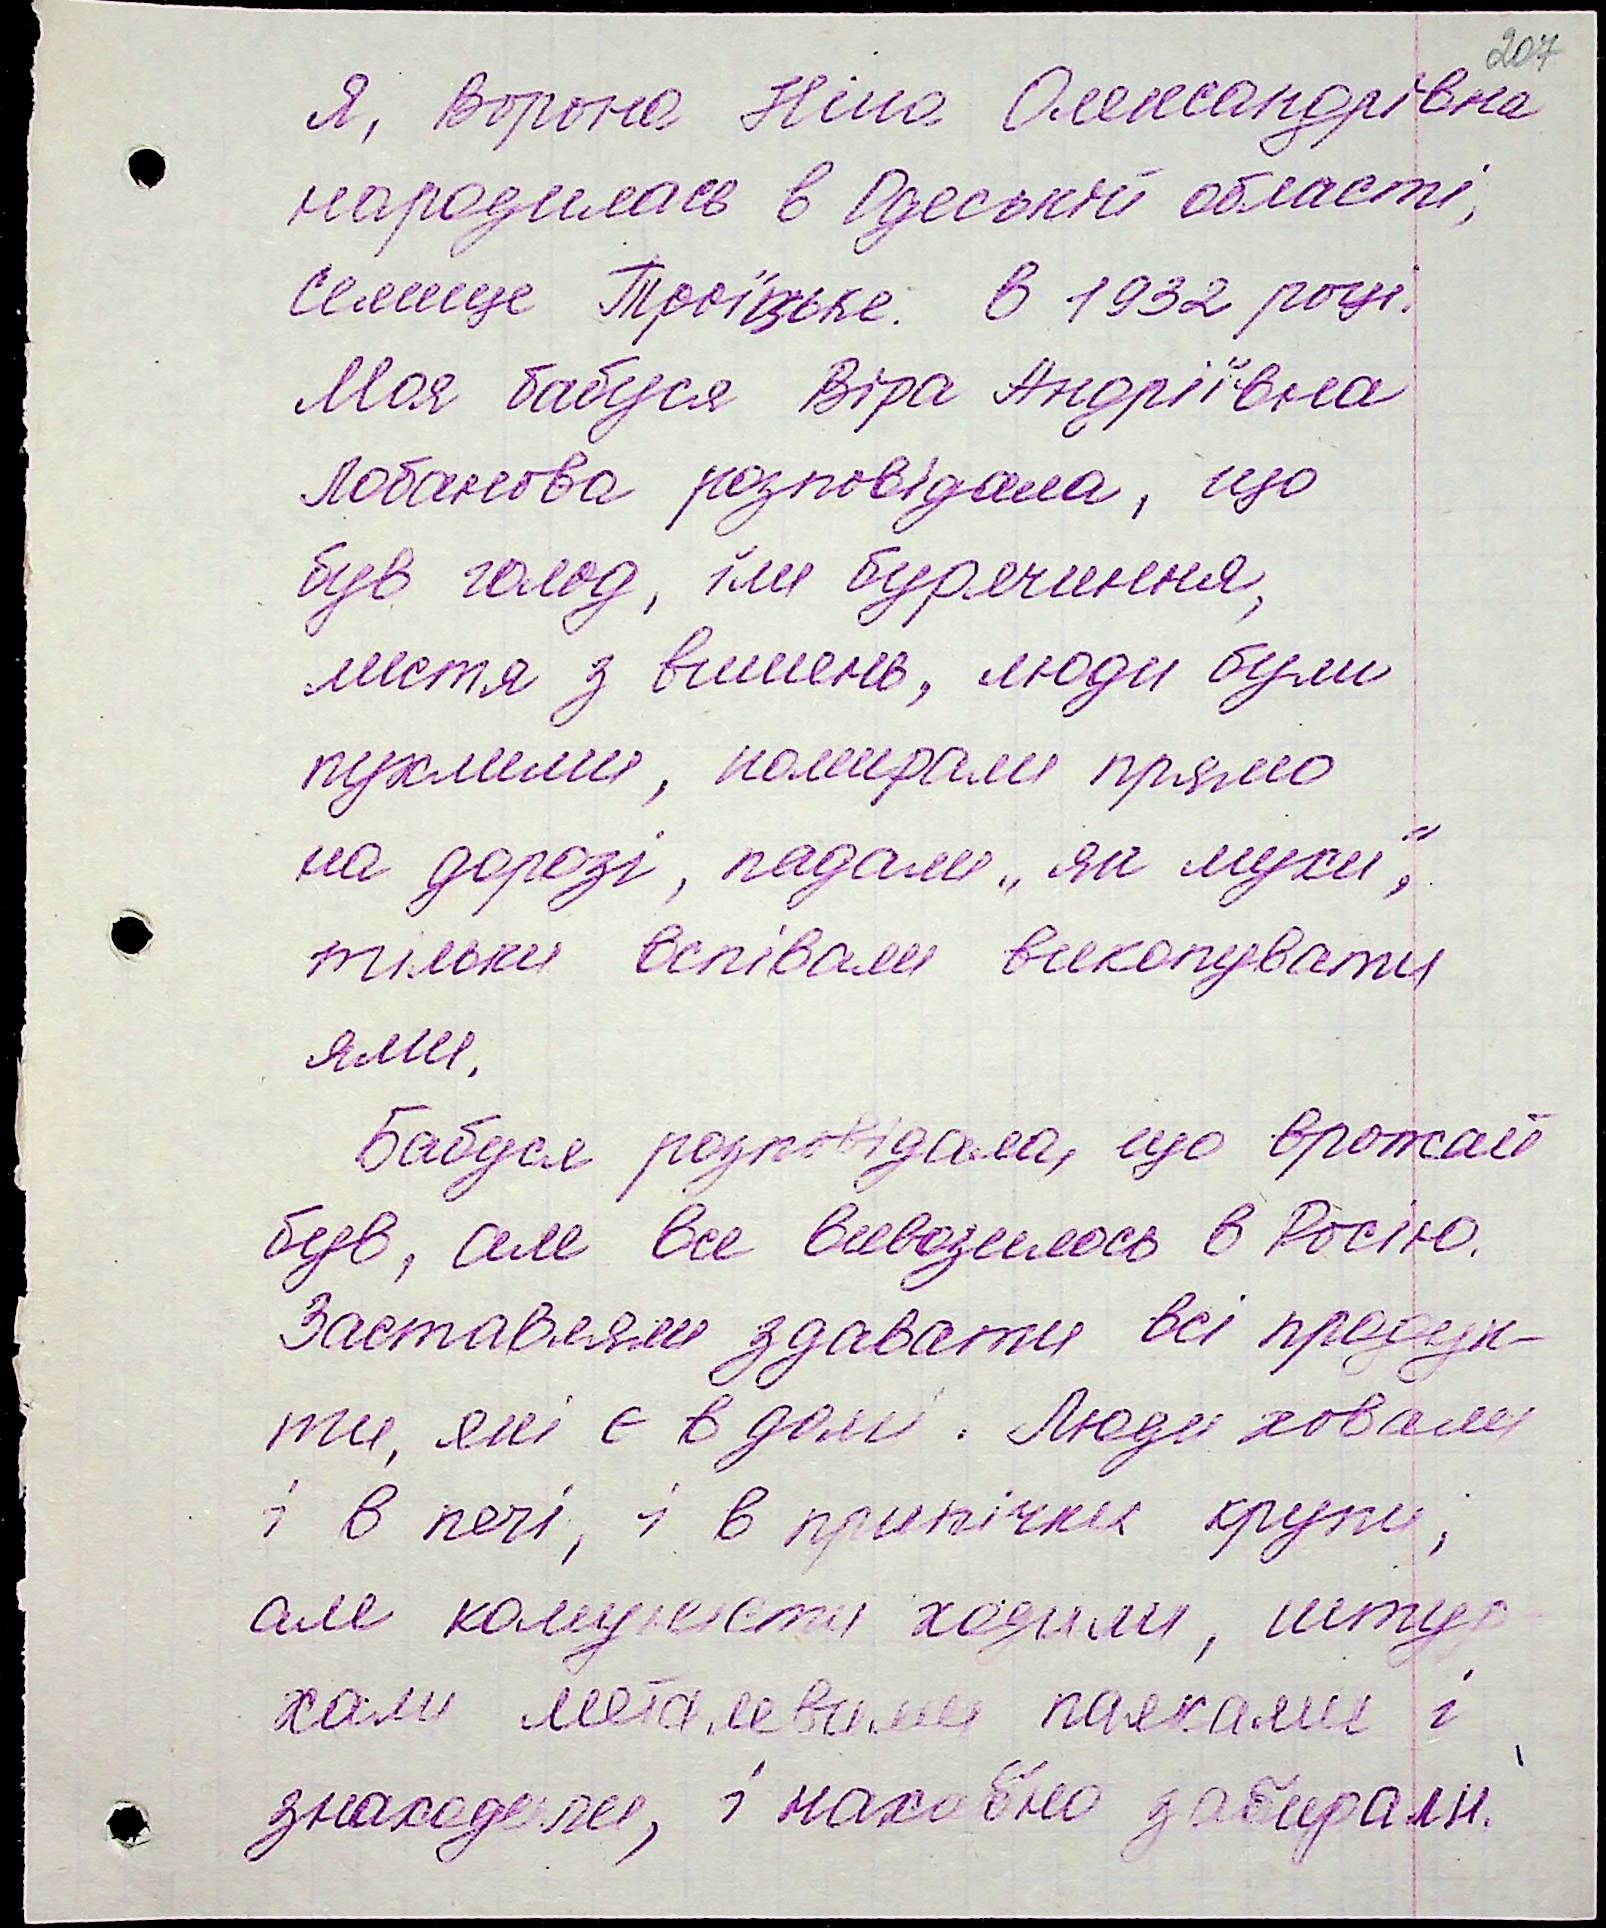 207
Я, Ворона Ніна Олександрівна
народилась в Одеській області,
селище Троїцьке. В 1932 році.
Моя бабуся Віра Андріївна
Лобанова розповідала, що
був голод, їли бурячиння,
листя з вишень, люди були
пухлими, помирали прямо
на дорозі, падали „як мухи",
тільки вспівали викопувати
ями.
Бабуся розповідала, що врожай
був, але все вивозилось в Росію.
Заставляли здавати всі продук-
ти, які є в домі. Люди ховали
і в печі, і в припічки крупи,
але комуністи ходили, штур-
хали металевими палками і
знаходили, і нахабно забирали.